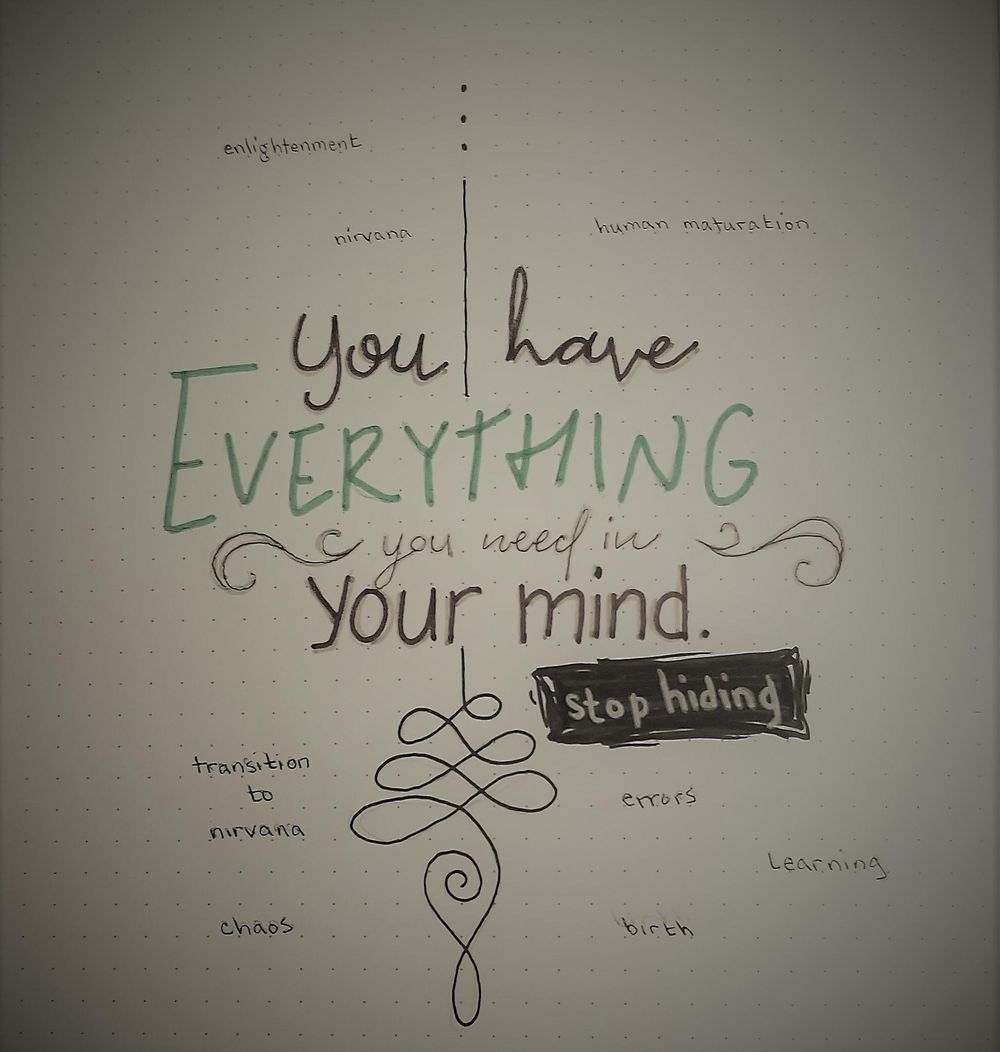 enlightenment
nirvana
human maturation
you have
EVERYTHING
you need in
your mind.
stop hiding
transition
to
nirvana
errors
Learning
chaos
birth